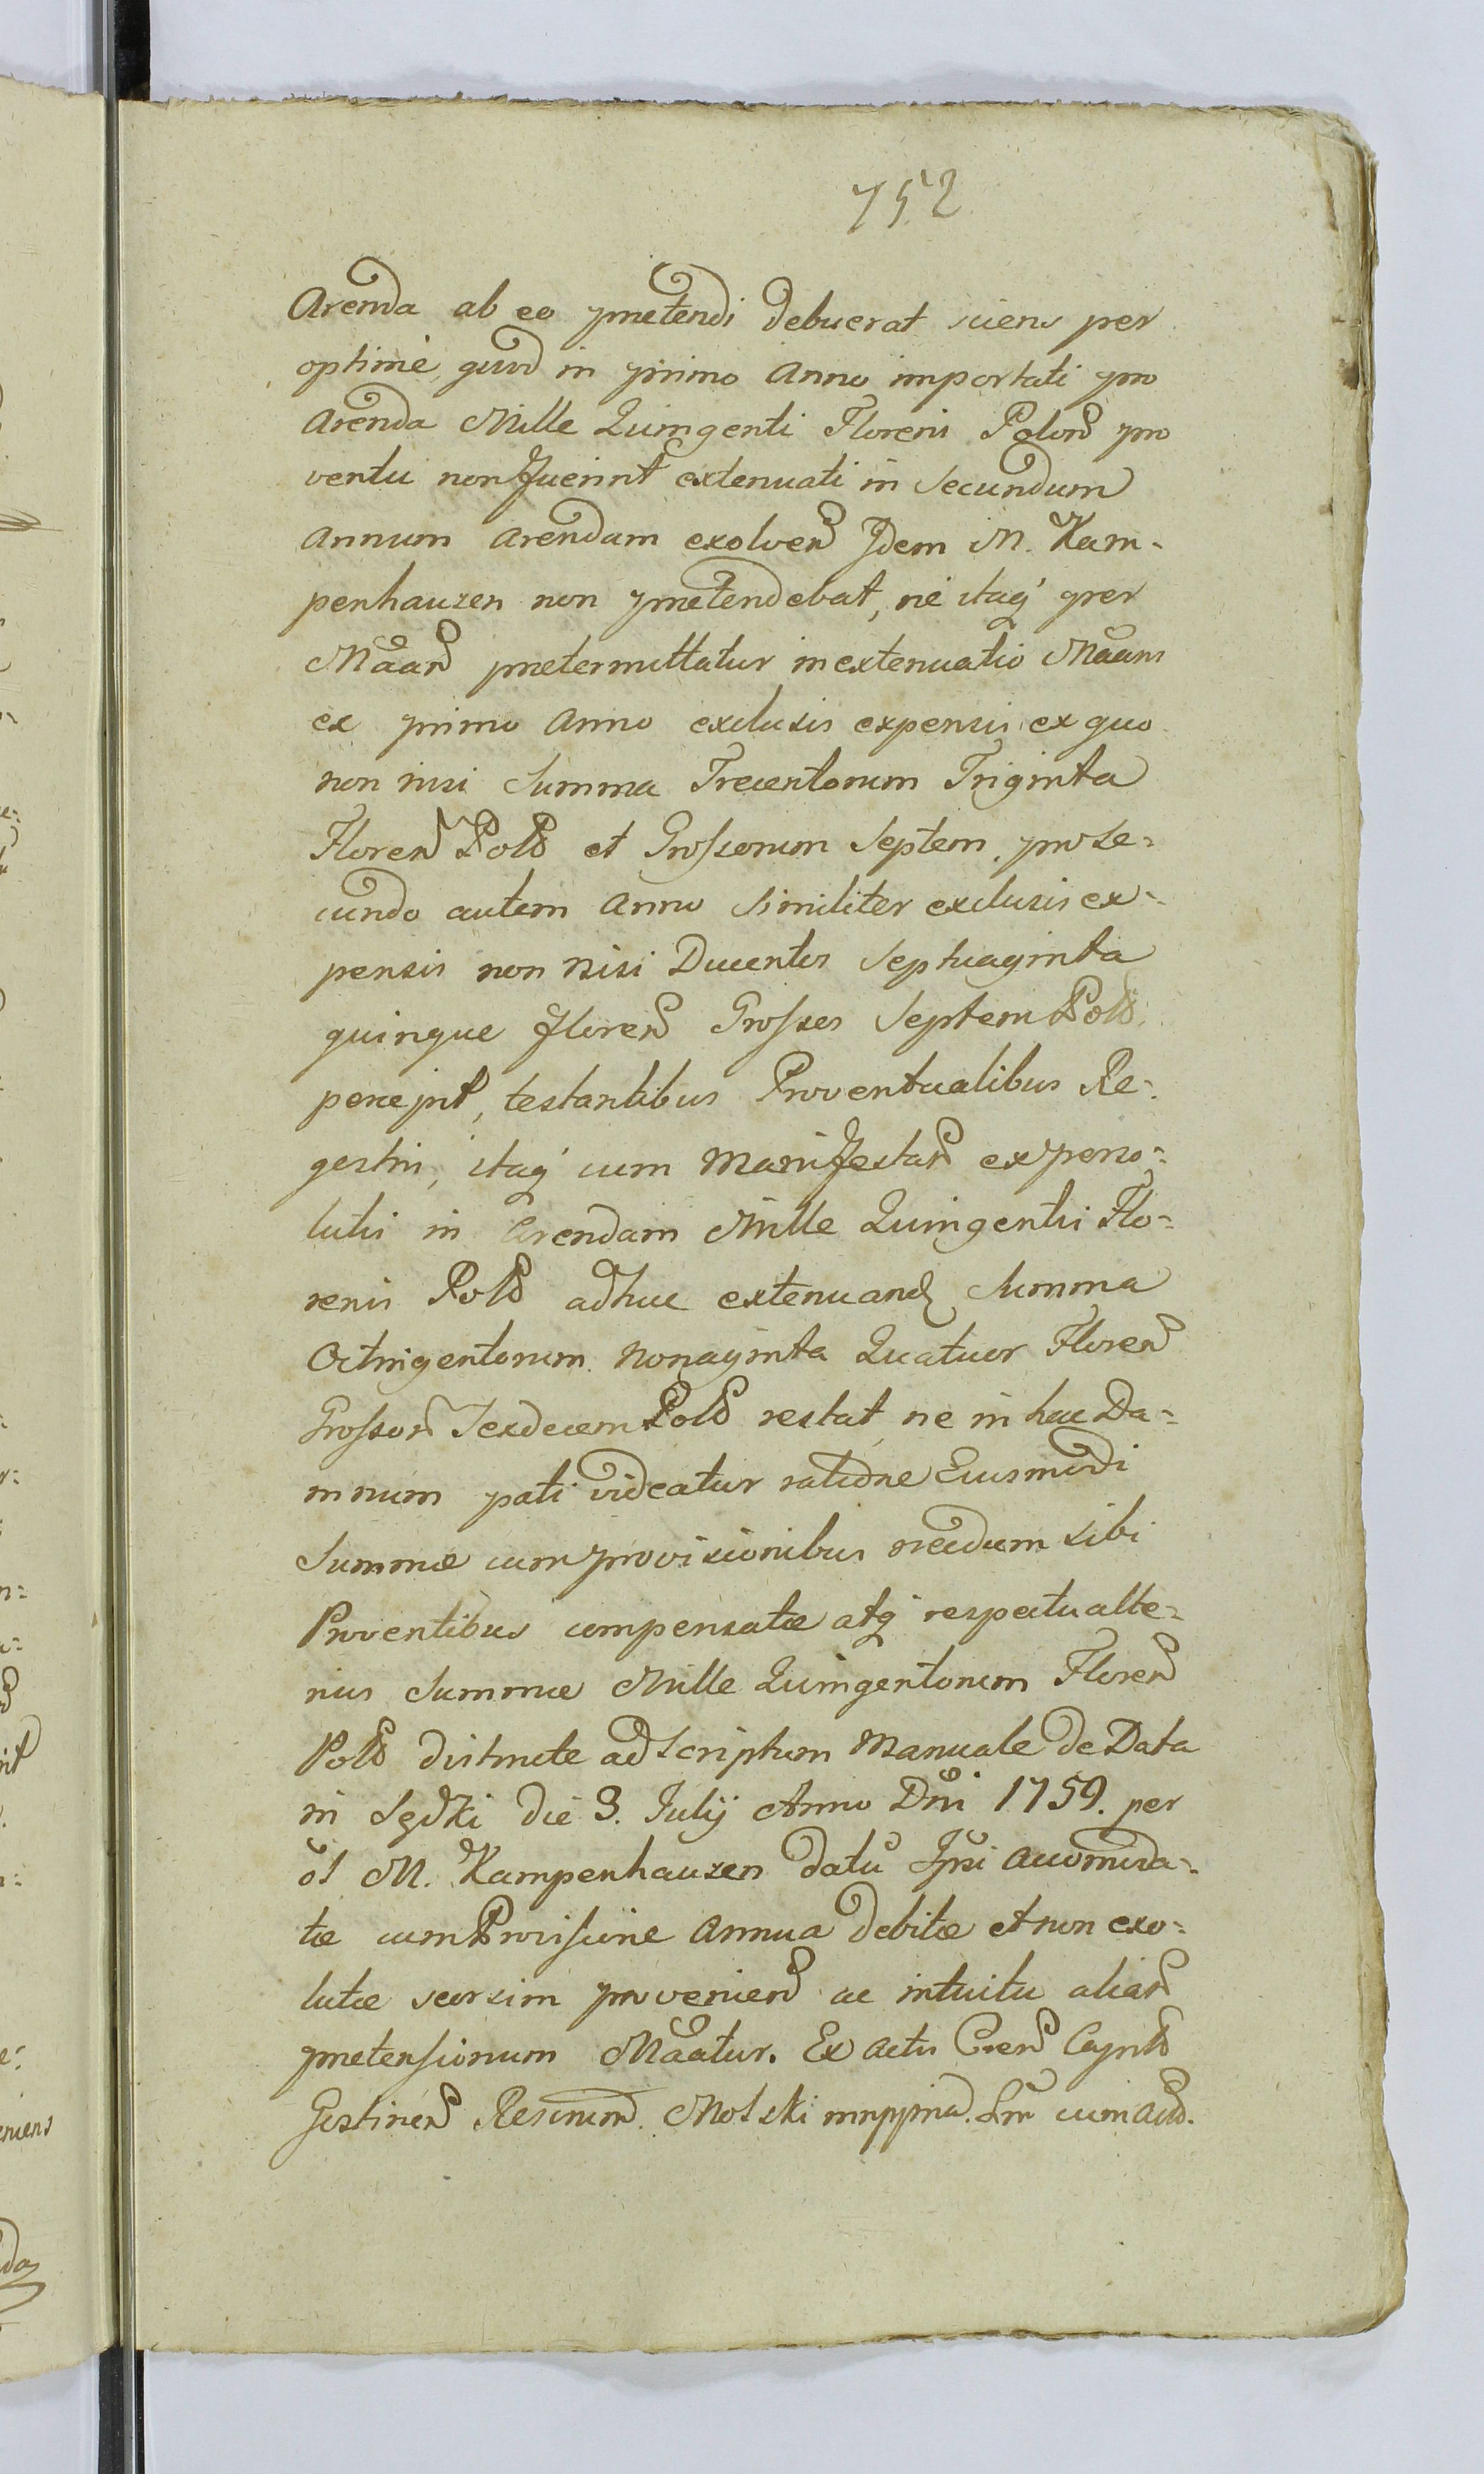 752
Arenda ab eo prætendi debuerat sciens per
optimè, quod in primo Anno importati pro
Arenda Mille Quingenti Floreni Polon pro
ventu non fuerint extenuati in Secundum
Annum Arendam exolven Idem M. Kam-
penhauzen non prætendebat, nè itaq per
Māan prætermittatur inextenuatio Māans
ex primo Anno exclusis expensis ex quo
non nisi Summa Trecentorum Triginta
Floren Poll et Grossorum Septem, pro Se=
cundo autem Anno Similiter exclusis ex=
pensis non nisi Ducentos Septuaginta
quinque floren Grosses Septem Poll
percepit, testantibus Proventualibus Re=
gestris, itaq cum Manifestan experso=
lutis in Arendam Mille Quingentis Flo=
renis Poll adhuc extenuand Summa
Octingentorum Nonaginta Quatuor Floren
Grosson Sexdecem Poll restat, ne in hac Da=
mnum pati videatur ratione Eiusmodi
Summæ cum provisionibus necdum sibi
Proventibus compensatæ atq respectu alte=
rius Summæ Mille Quingentorum Floren
Poll distincte ad Scriptum Manuale de Data
in Sędki die 3. Julij Anno Dni 1759. per
ōs M. Kampenhauzen datū Ipsi accomoda=
tæ cum Provisione Annua debitæ et non exo=
lutæ seorsim provenien ac intuitu alian
prætensionum Māatur. Ex Actis Cren Capntl
Gostinen Rescriptum. Molski mppria. Lm cum Actis.